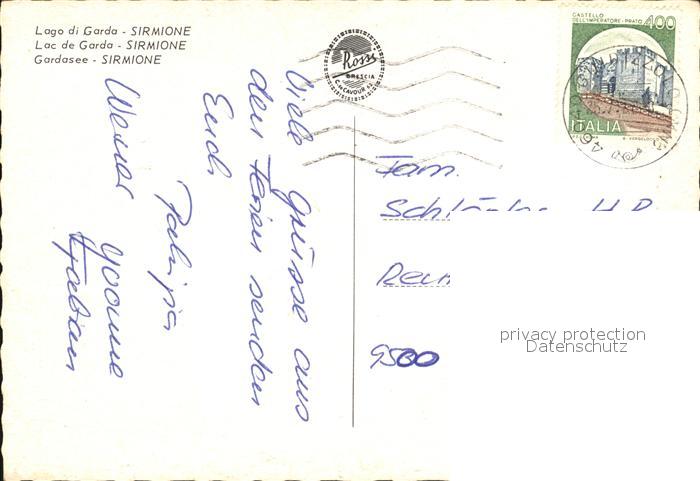 Lago di Garda - SIRMIONE
Lac de Garda - SIRMIONE
Gardasee - SIRMIONE
Rossi
BRESCIA
C. CAVOUR
CASTELLO
DELL'IMPERATORE - PRATO 400
ITALIA
Viele Grüsse aus
den Ferien senden
Euch
Werner Yvonne
Fabian
Fam.
9500
privacy protection
Datenschutz